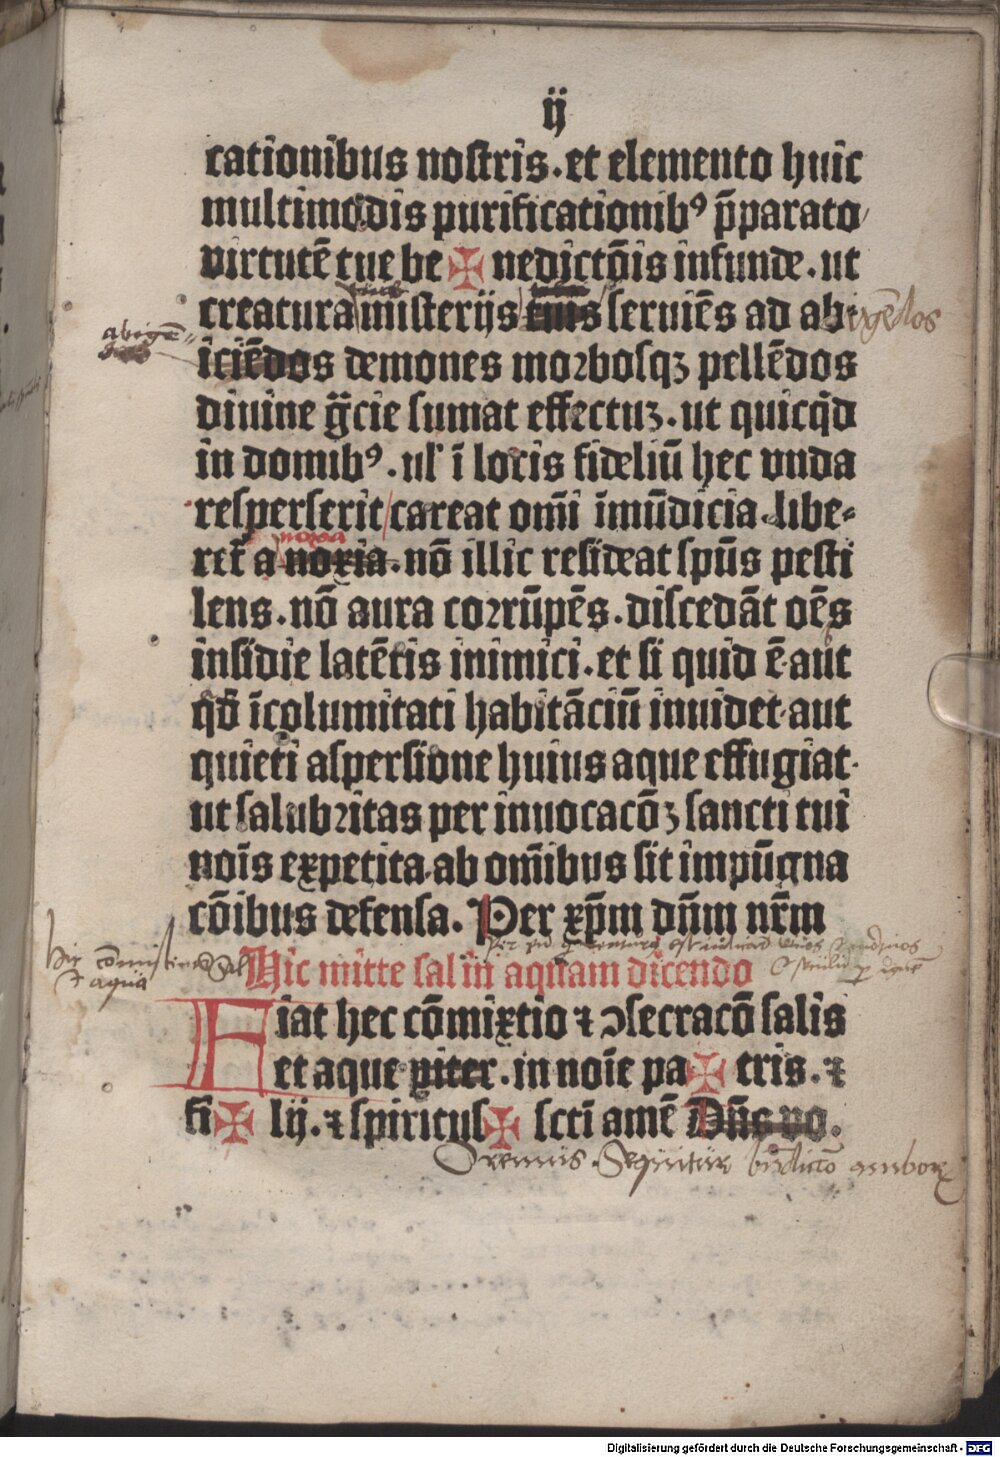 ij
cationibus nostris. et elemento huic
multimodis purificationibꝰ p̄parato
virtutē tue be ✠ nedictōis infunde. ut
creatura misterijs tuis seruiēs ad abi
abigē
iciēdos demones morbosqꝫ pellēdos
diuine gr̄cie sumat effectuꝫ. ut quicq̄d
in domibꝰ. ul' ī locis fideliū hec vnda
resperserit careat om̄i īmūdicia. libe-
noxa
ret̄ a noxia. nō illic resideat spūs pesti
lens. nō aura corrūpēs. discedāt oēs
insidie latētis inimici. et si quid ē aut
qd̄ īcolumitati habitāciū inuidet aut
quieti aspersione huius aque effugiat.
ut salubritas per inuocacōꝫ sancti tui
noīs expetita. ab om̄ibus sit impūgna
cōibus defensa. Per xp̄m dn̄m nr̄m
Hic mitte sal in aquam dicendo
Fiat hec cōmixtio ⁊ ↄsecracō salis
et aque pit̄er. in noīe pa ✠ tris. ⁊
fi ✠ lij. ⁊ spiritus ✠ sctī amē Dn̄s vo.
Oremus. Sequitur bn̄dictō amborꝝ
Digitalisierung gefördert durch die Deutsche Forschungsgemeinschaft - DFG